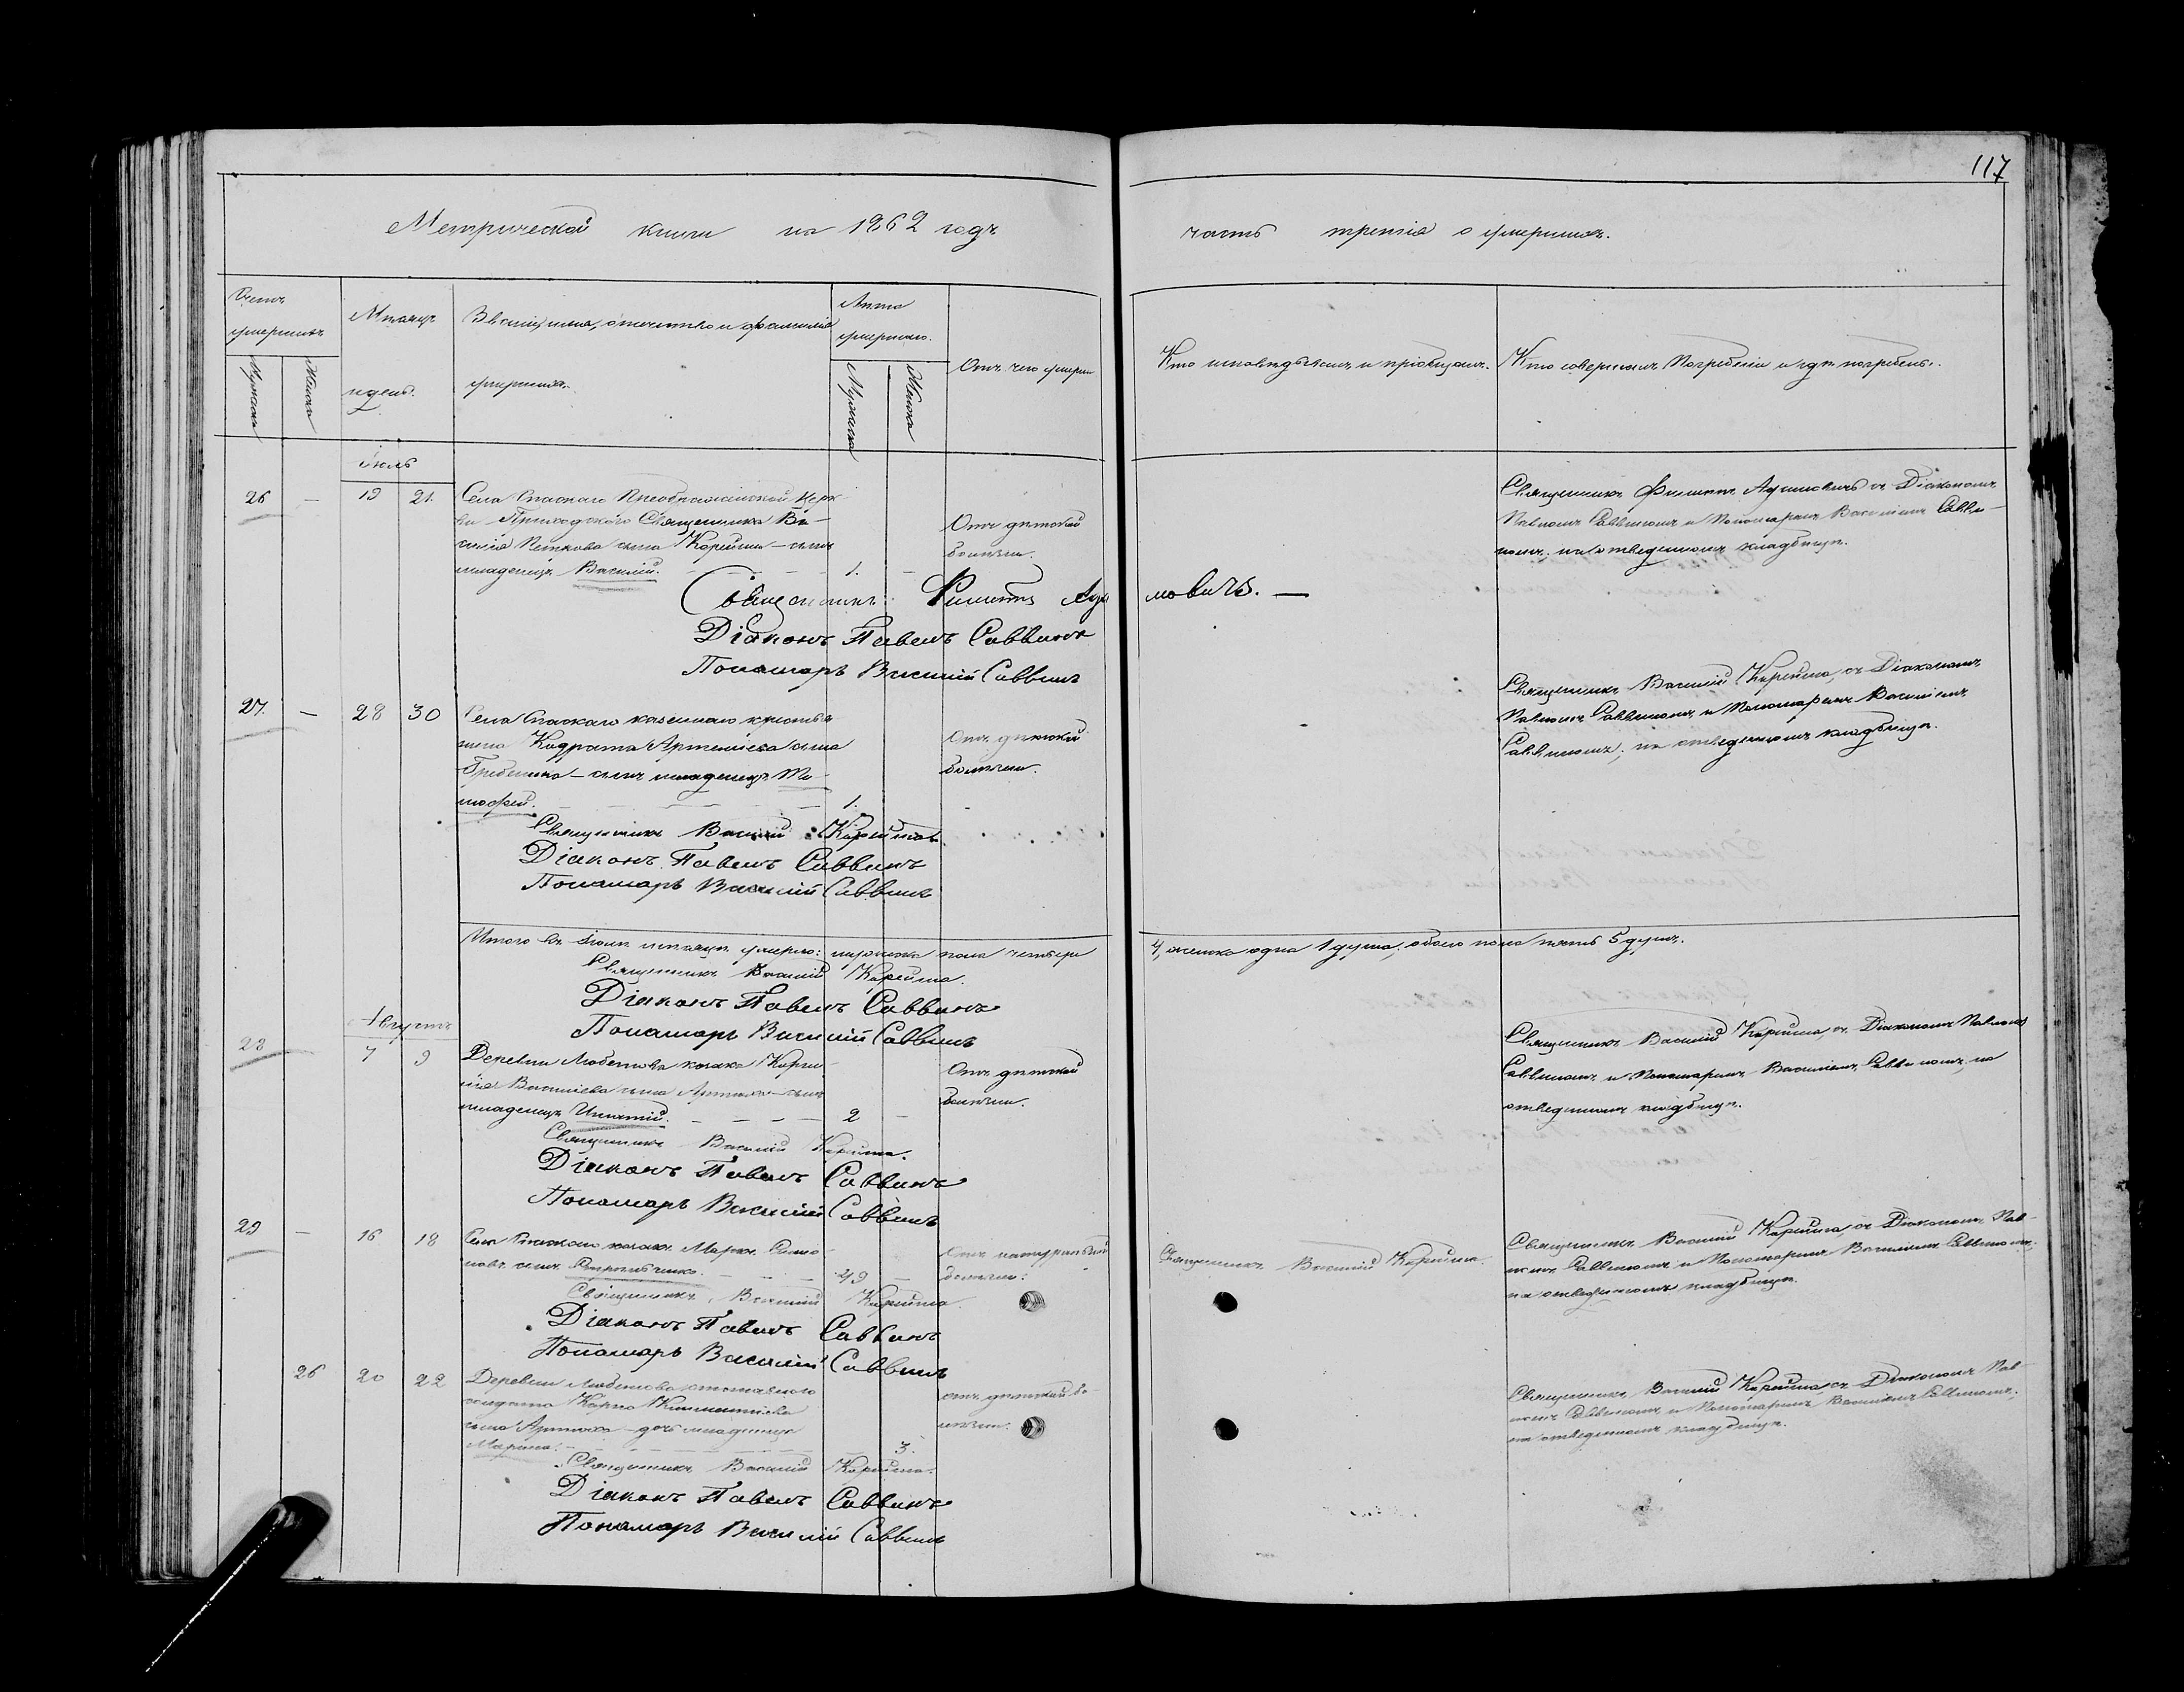 117
Метрической книги на 1862 годъ часть третія о умершихъ.
Счетъ умершихъ
Мужеска
Женска
Мѣсяцъ и день.
Званіе, имя, отчество и фамилія умершихъ.
Лѣта умершаго.
Мужеска
Женска
Отъ чего умеръ
Кто исповѣдывалъ и пріобщалъ.
Кто совершалъ Погребеніе и гдѣ погребены.
Іюль
26 — 19 21.
Села Спаскаго Преображенской Церк-
ви Приходскаго Священника Ва-
силія сына Карейша – сынъ
младенецъ Василій. — — — 1. —
Отъ дѣтской
болѣзни.
Священникъ Филиппъ Адамовичъ съ Діакономъ
Павломъ Саввинымъ и Пономаремъ Василіемъ Савви-
нымъ; на отведенномъ кладбищѣ.
Священникъ Филиппъ Адамовичъ. —
Діаконъ Павелъ Саввинъ
Пономарь Василій Саввинъ
27. — 28 30
Села Спаскаго казеннаго крестья-
нина Кодрата Артеміева сына
Гребеника – сынъ младенецъ Ти-
мофей. — — — — 1.
Отъ дѣтской
болѣзни.
Священникъ Василій Карейша, съ Діакономъ
Павломъ Саввинымъ и Пономаремъ Василіемъ
Саввинымъ; на отведенномъ кладбищѣ.
Священникъ Василій Карейша.
Діаконъ Павелъ Саввинъ
Пономарь Василій Саввинъ
Итого въ Іюлѣ мѣсяцѣ умерло: мужеска пола четыре 4, женска одна 1 душа, обоего пола пять 5 душъ.
Священникъ Василій Карейша.
Діаконъ Павелъ Саввинъ
Пономарь Василій Саввинъ
Августъ
28 7 9
Деревни Любитова козака Корни-
лія Василіева сына Артюха – сынъ
младенецъ Игнатій. — — — 2 —
Отъ дѣтской
болѣзни.
Священникъ Василій Карейша, съ Діакономъ Павломъ
Саввинымъ и Пономаремъ Василіемъ Саввинымъ, на
отведенномъ кладбищѣ.
Священникъ Василій Карейша.
Діаконъ Павелъ Саввинъ
Пономарь Василій Саввинъ
29 — 16 18
Села Спаскаго козакъ Марко Симо-
новъ сынъ — — — 49 —
Отъ натуральной
болѣзни.
Священникъ Василій Карейша.
Священникъ Василій Карейша, съ Діакономъ Пав-
ломъ Саввинымъ и Пономаремъ Василіемъ Саввинымъ,
на отведенномъ кладбищѣ.
Священникъ Василій Карейша.
Діаконъ Павелъ Саввинъ
Пономарь Василій Саввинъ
26 20 22
Деревни Любитова отставнаго
солдата Карпа Климентіева
сына Артюха – дочь младенецъ
Марина. — — — 3.
отъ дѣтской бо-
лѣзни.
Священникъ Василій Карейша съ Діакономъ Пав-
ломъ Саввинымъ и Пономаремъ Василіемъ Саввинымъ,
на отведенномъ кладбищѣ.
Священникъ Василій Карейша.
Діаконъ Павелъ Саввинъ
Пономарь Василій Саввинъ